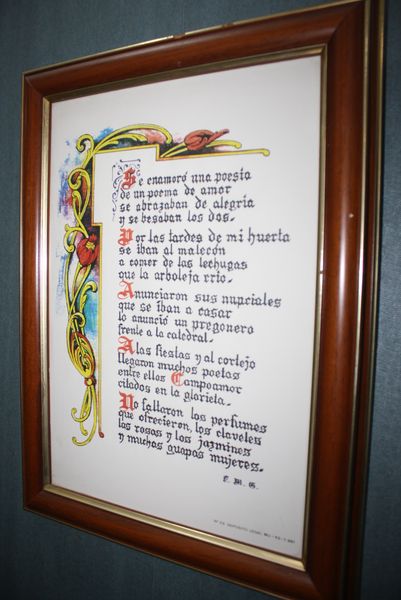 Se enamoró una poesia
de un poema de amor
se abrazaban de alegria
y se besaban los dos.
Por las tardes de mi huerta
se iban al malecón
a comer de las lechugas
que la arboleja crio.
Anunciaron sus nupciales
que se iban a casar
lo anunció un pregonero
frente a la catedral.
A las fiestas y al cortejo
llegaron muchos poetas
entre ellos Campoamor
citados en la glorieta.
No faltaron los perfumes
que ofrecieron, los claveles
las rosas y los jazmines
y muchas guapas mujeres.